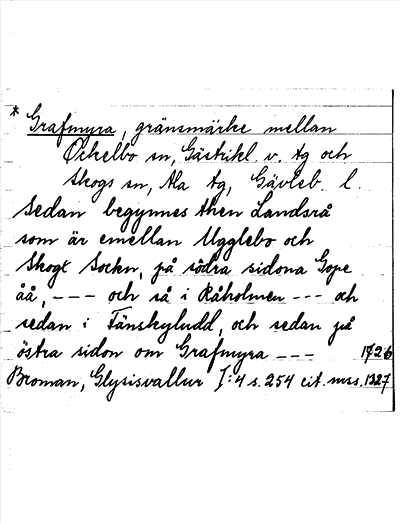 * Grafmyra, gränsmärke mellan
Ockelbo sn, Gästrikl. v. tg och
Skogs sn, Ala tg, Gävleb. l.
Sedan begynnes then Landsrå
som är emellan Ugglebo och
Skogz Sockn, på södra sidona Gope
åå, --- och så i Råholmen --- och
sedan i Tänskyludd, och sedan på
östra sidon om Grafmyra --- 1726
Broman, Glysisvallur I:4 s. 254 cit. mss. 1327